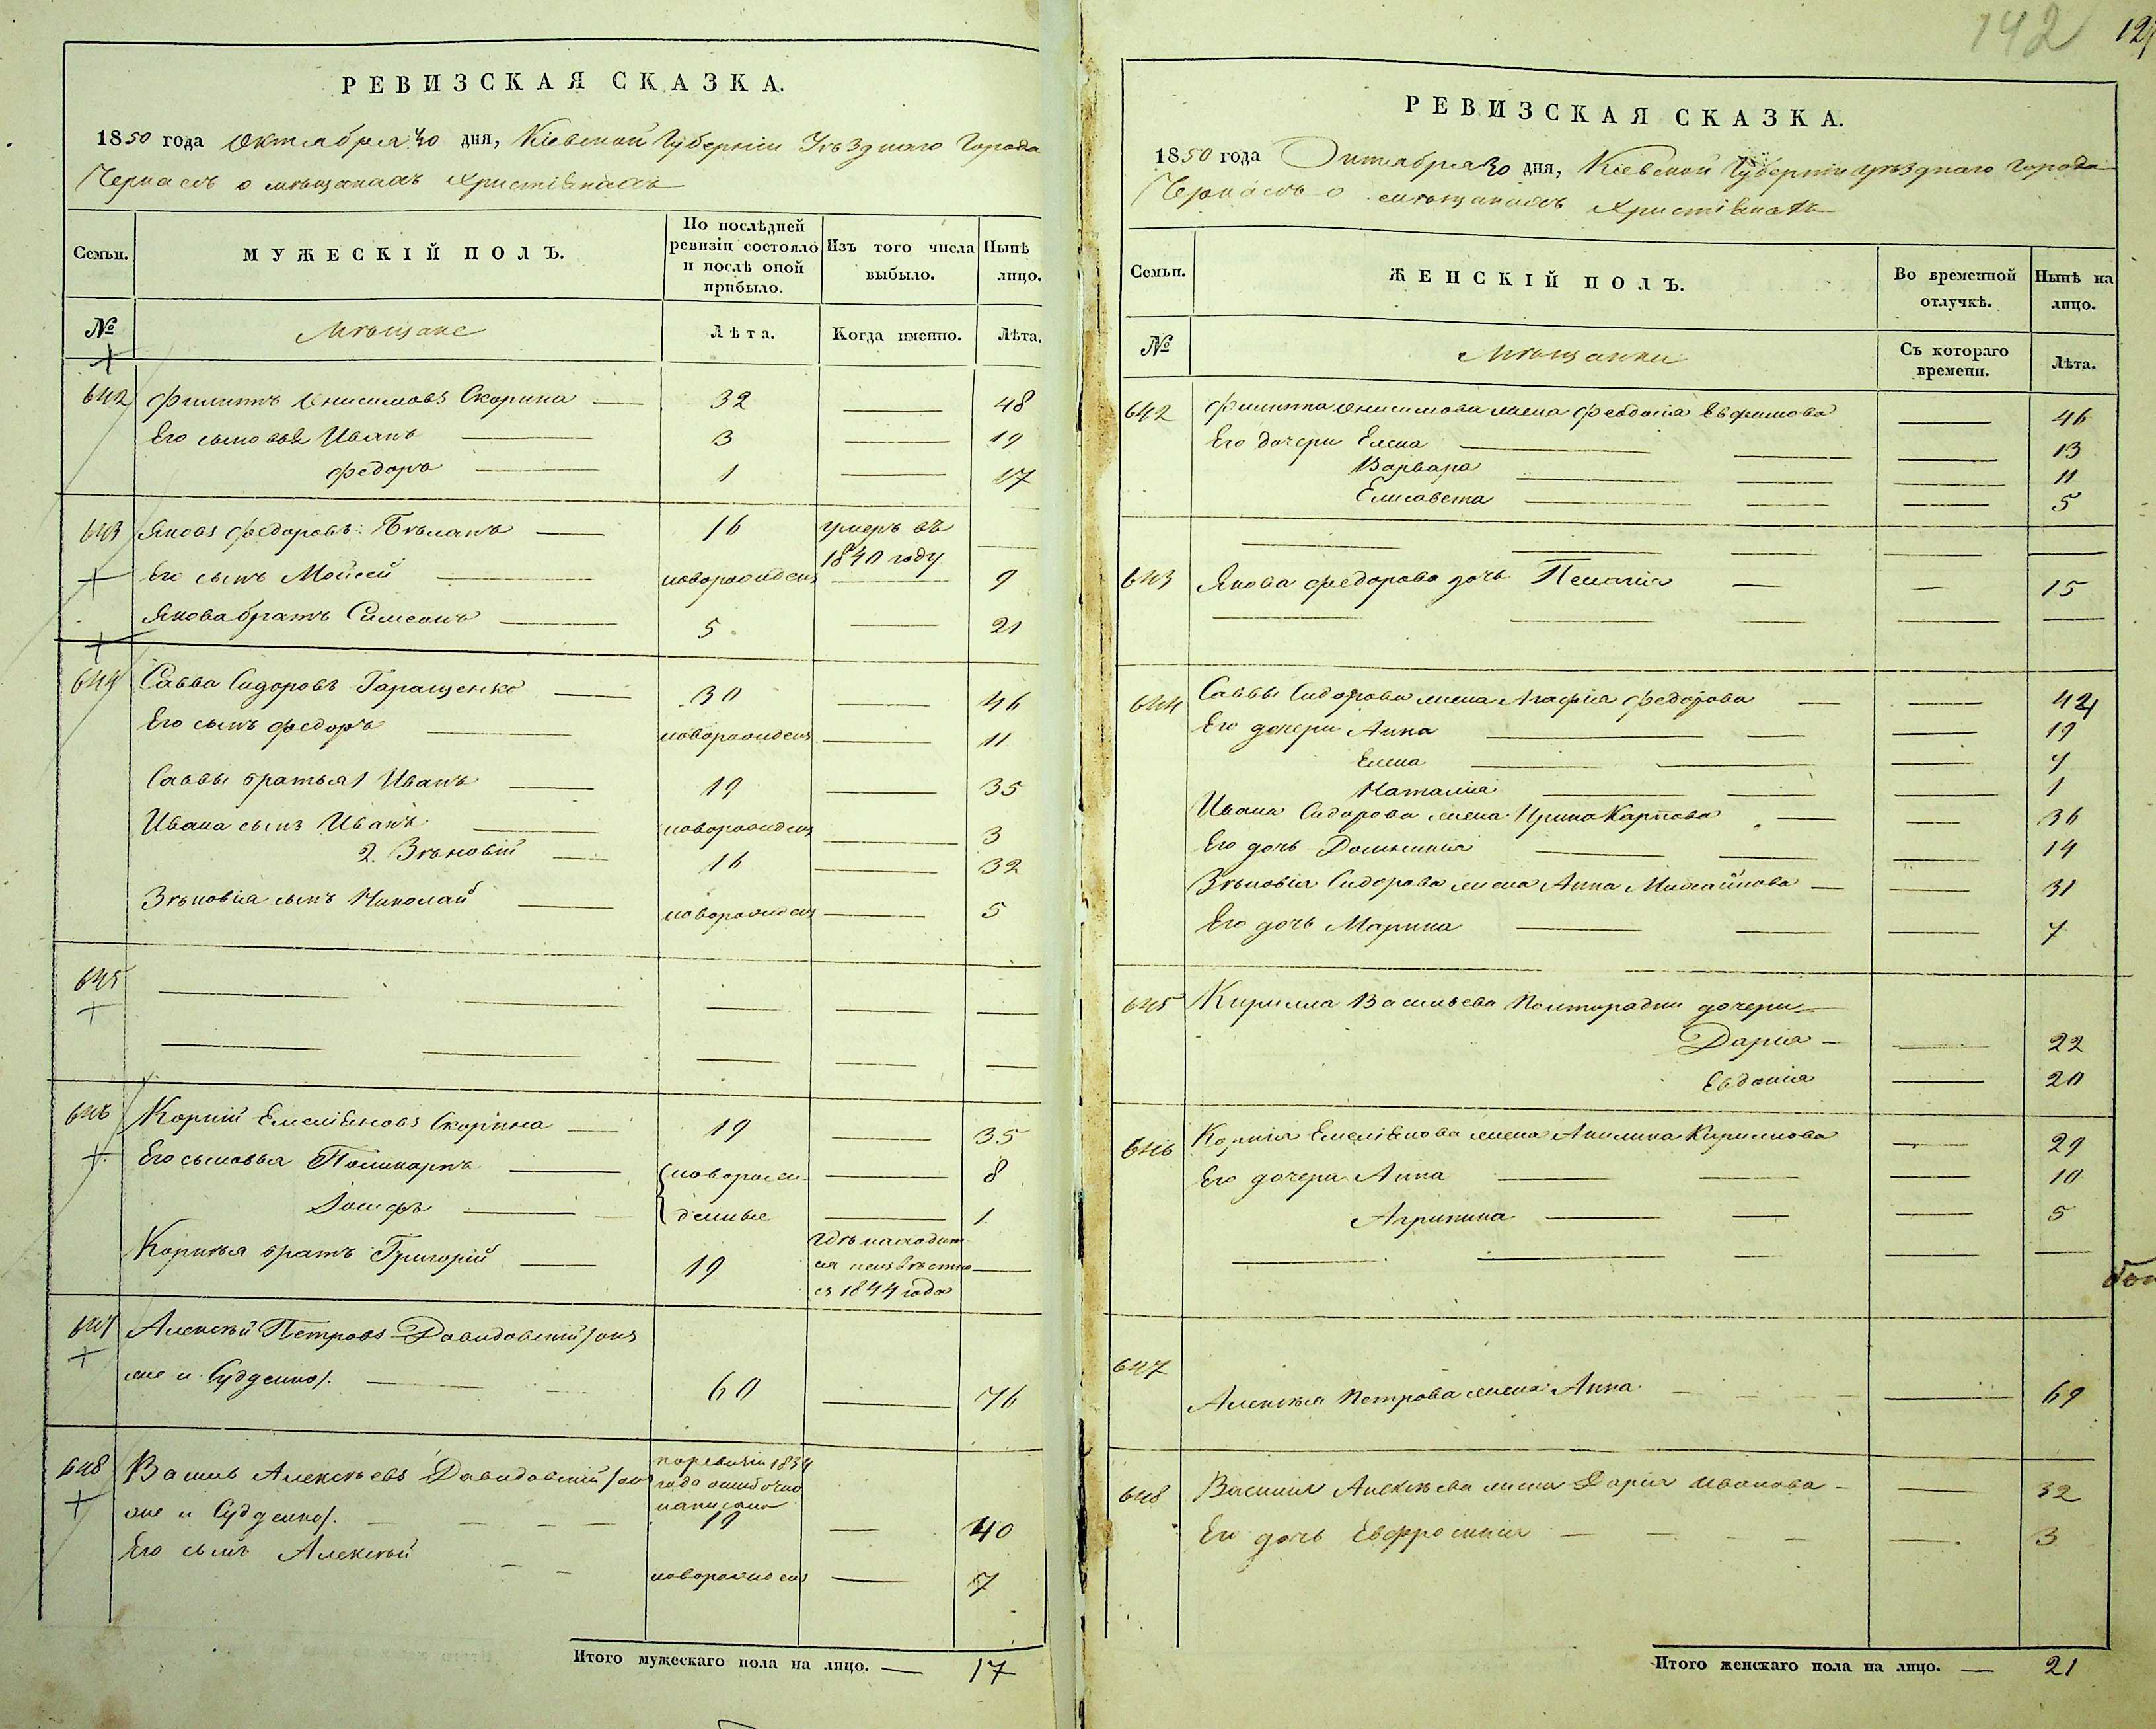 РЕВИЗСКАЯ СКАЗКА.
1850 года Октября 30 дня, Кіевской Губерніи Уѣзднаго Города
Черкасъ о мѣщанахъ христіянахъ
Семьи.
МУЖЕСКІЙ ПОЛЪ.
По послѣдней ревизіи состояло и послѣ оной прибыло.
Изъ того числа выбыло.
Нынѣ лицо.
№
Мѣщане
Лѣта.
Когда именно.
Лѣта.
642 Филиппъ Онисимовъ Скорина — 32 — 48
Его сыновья Иванъ — 3 — 19
Федоръ — 1 — 17
643 Яковъ Федоровъ Бѣланъ — 16 умеръ въ
1840 году —
Его сынъ Мойсей — новорожденъ — 9
Якова братъ Симеонъ — 5 — 21
644 Савва Сидоровъ Гаращенко — 30 — 46
Его сынъ Федоръ — новорожденъ — 11
Саввы братья 1 Иванъ — 19 — 35
Ивана сынъ Иванъ — новорожденъ — 3
2. Зѣновій — 16 — 32
Зѣновія сынъ Николай — новорожденъ — 5
645 — — — — —
646 Корній Емеліяновъ Скорина — 19 — 35
Его сыновья Поликарпъ — новорож — 8
Іосифъ — денные — 1
Корнѣя братъ Григорій — 19 гдѣ находит-
ся неизвѣстно —
съ 1844 года
647 Алексѣй Петровъ Давидовскій /онъ
же и Судденко/. — 60 — 76
648 Василь Алексѣевъ Давидовскій /онъ по ревизіи 1834
года ошибочно
написано
же и Судденко/. — 19 — 40
Его сынъ Алексѣй — новорожденъ — 7
Итого мужескаго пола на лицо. — 17
142
РЕВИЗСКАЯ СКАЗКА.
1850 года Октября 30 дня, Кіевской Губерніи Уѣзднаго Города
Черкасъ о мѣщанахъ христіянахъ
Семьи.
ЖЕНСКІЙ ПОЛЪ.
Во временной отлучкѣ.
Нынѣ на лицо.
№
Мѣщанки
Съ котораго времени.
Лѣта.
642 Филиппа Онисимова жена Феодосія Ефимова — 46
Его дочери Елена — 13
Варвара — 11
Елисавета — 5
643 Якова Федорова дочь Пелагія — 15
644 Саввы Сидорова жена Агафія Федорова — 42
Его дочери Анна — 19
Елена — 7
Наталія — 1
Ивана Сидорова жена Ирина Карпова — 36
Его дочь Домникия — 14
Зѣновія Сидорова жена Анна Михайлова — 31
Его дочь Марина — 7
645 Кирилла Васильева дочери —
Дарія — — 22
Евдокія — 20
646 Корнія Емеліянова жена Акилина Кирилова — 29
Его дочери Анна — 10
Агрипина — 5
647
Алексѣя Петрова жена Анна — 69
648 Василія Алексѣева жена Дарія Иванова — 32
Его дочь Евфросинія — 3
Итого женскаго пола на лицо. — 21